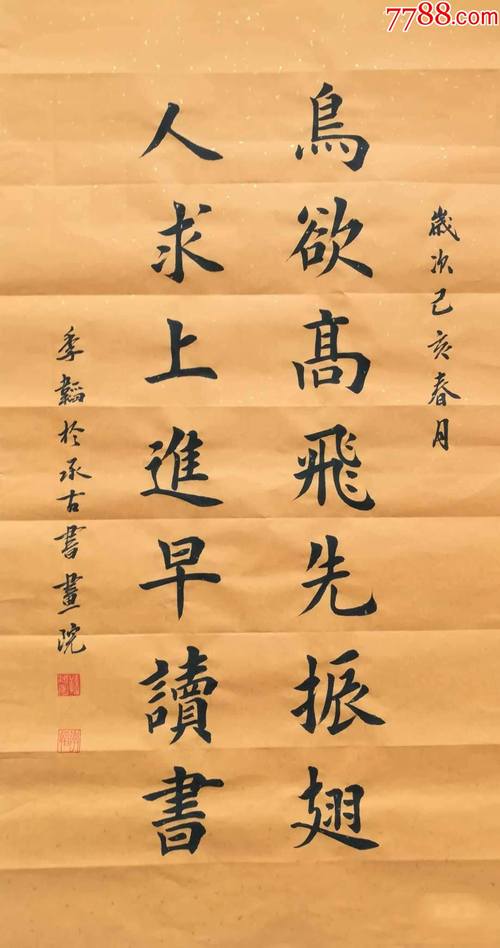 7788.com
歲次己亥春月
鳥欲高飛先振翅
人求上進早讀書
季韜於承古書畫院